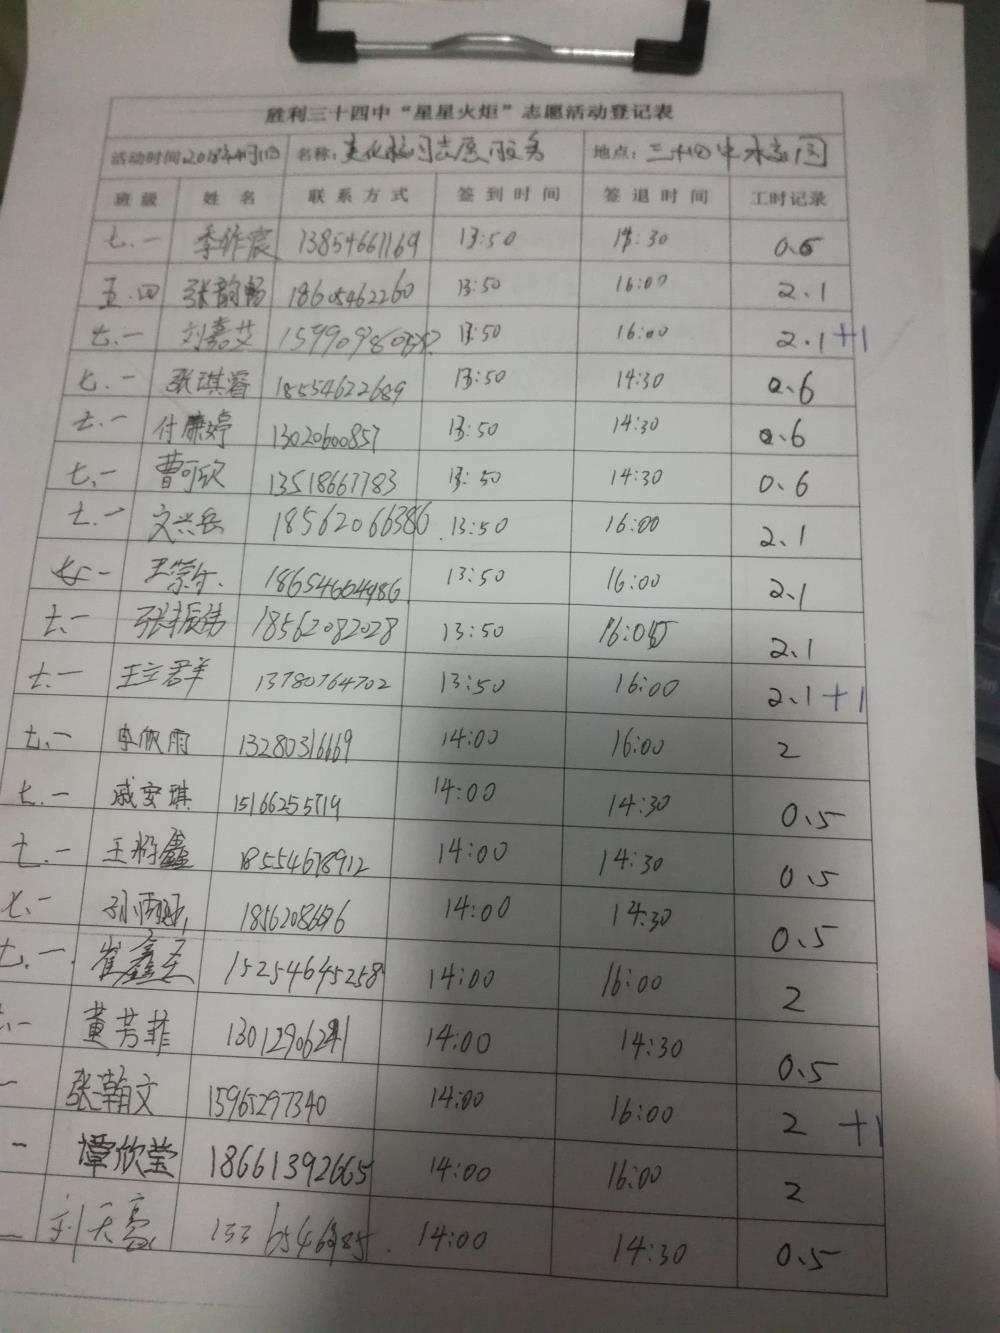 胜利三十四中“星星火炬”志愿活动登记表
活动时间 名称：美化校园志愿服务 地点：三十四中
班级 姓名 联系方式 签到时间 签退时间 工时记录
七.一 季作宸 13854661169 13:50 14:30 0.6
五.四 张韵畅 18605462260 13:50 16:00 2.1
七.一 刘嘉艾 13:50 16:00 2.1 +1
七.一 张琪睿 18554622689 13:50 14:30 0.6
七.一 付康婷 1302600857 13:50 14:30 0.6
七.一 曹可欣 13518667783 13:50 14:30 0.6
七.一 文兴岳 18562066386 13:50 16:00 2.1
七.一 王荣乐 18654664986 13:50 16:00 2.1
七.一 张振伟 18562082028 13:50 16:00 2.1
七.一 王立君羊 13780764702 13:50 16:00 2.1 +1
七.一 李欣雨 13280316169 14:00 16:00 2
七.一 戚安琪 15166255719 14:00 14:30 0.5
七.一 王梓鑫 18554678912 14:00 14:30 0.5
七.一 孙雨 14:00 14:30 0.5
七.一 崔鑫圣 15254645258 14:00 16:00 2
七.一 黄芳菲 13012906241 14:00 14:30 0.5
一 张瀚文 15965297340 14:00 16:00 2 +1
一 谭欣莹 18661392665 14:00 16:00 2
一 刘天豪 14:00 14:30 0.5